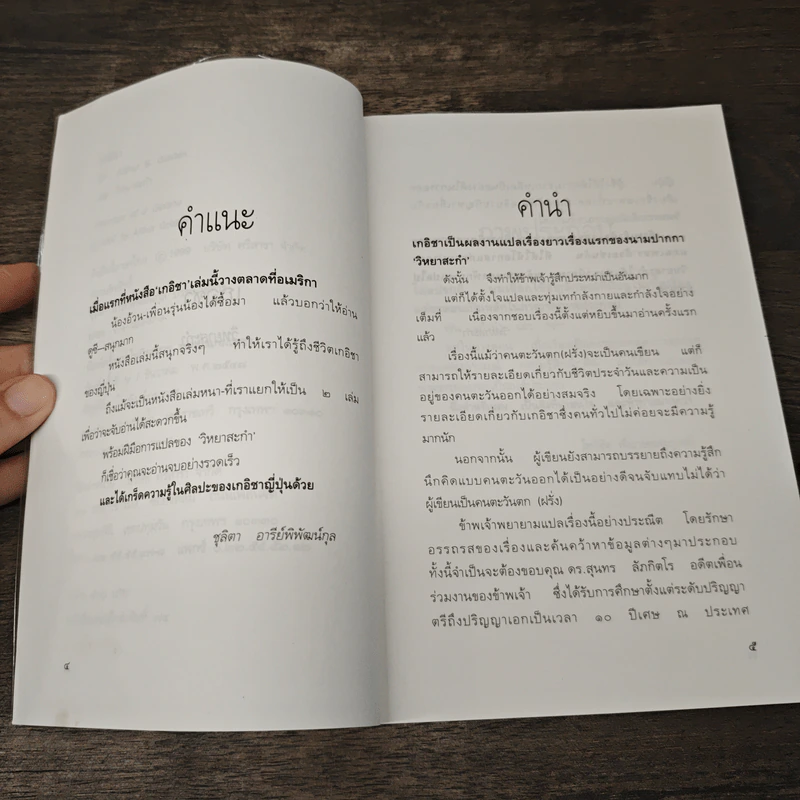 คำแนะ
เมื่อแรกที่หนังสือ'เกอิชา'เล่มนี้วางตลาดที่อเมริกา
น้องอ้วน-เพื่อนรุ่นน้องได้ซื้อมา แล้วบอกว่าให้อ่าน
ดูซี—สนุกมาก
หนังสือเล่มนี้สนุกจริงๆ ทำให้เราได้รู้ถึงชีวิตเกอิชา
ของญี่ปุ่น
ถึงแม้จะเป็นหนังสือเล่มหนา-ที่เราแยกให้เป็น ๒ เล่ม
เพื่อว่าจะจับอ่านได้สะดวกขึ้น
พร้อมฝีมือการแปลของ 'วิทยาสะกำ'
ก็เชื่อว่าคุณจะอ่านจบอย่างรวดเร็ว
และได้เกร็ดความรู้ในศิลปะของเกอิชาญี่ปุ่นด้วย
ชุลิตา อารีย์พิพัฒน์กุล
๔
คำนำ
เกอิชาเป็นผลงานแปลเรื่องยาวเรื่องแรกของนามปากกา
'วิทยาสะกำ'
ดังนั้น จึงทำให้ข้าพเจ้ารู้สึกประหม่าเป็นอันมาก
แต่ก็ได้ตั้งใจแปลและทุ่มเทกำลังกายและกำลังใจอย่าง
เต็มที่ เนื่องจากชอบเรื่องนี้ตั้งแต่หยิบขึ้นมาอ่านครั้งแรก
แล้ว
เรื่องนี้แม้ว่าคนตะวันตก(ฝรั่ง)จะเป็นคนเขียน แต่ก็
สามารถให้รายละเอียดเกี่ยวกับชีวิตประจำวันและความเป็น
อยู่ของคนตะวันออกได้อย่างสมจริง โดยเฉพาะอย่างยิ่ง
รายละเอียดเกี่ยวกับเกอิชาซึ่งคนทั่วไปไม่ค่อยจะมีความรู้
มากนัก
นอกจากนั้น ผู้เขียนยังสามารถบรรยายถึงความรู้สึก
นึกคิดแบบคนตะวันออกได้เป็นอย่างดีจนจับแทบไม่ได้ว่า
ผู้เขียนเป็นคนตะวันตก (ฝรั่ง)
ข้าพเจ้าพยายามแปลเรื่องนี้อย่างประณีต โดยรักษา
อรรถรสของเรื่องและค้นคว้าหาข้อมูลต่างๆมาประกอบ
ทั้งนี้จำเป็นจะต้องขอบคุณ ดร.สุนทร ลัภกิตโร อดีตเพื่อน
ร่วมงานของข้าพเจ้า ซึ่งได้รับการศึกษาตั้งแต่ระดับปริญญา
ตรีถึงปริญญาเอกเป็นเวลา ๑๐ ปีเศษ ณ ประเทศ
๕